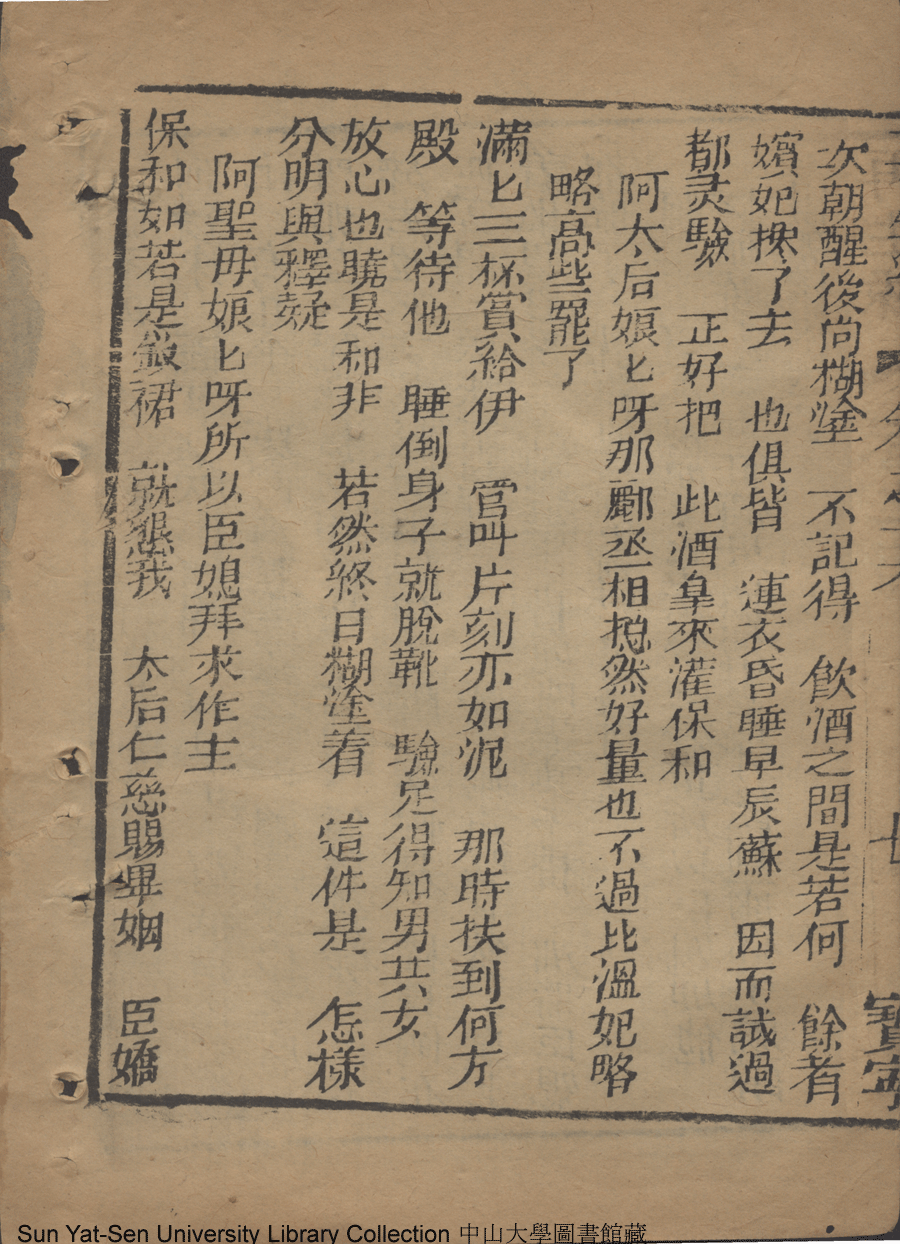 次朝醒後尚糊塗　不記得　飲酒之間是若何　餘者
嬪妃挨了去　也俱皆　連衣昏睡早辰蘇　因而試過
都灵驗　正好把　此酒皇來灌保和
阿太后娘匕呀那酈丞相揔然好量也不過比溫妃略
略高些罷了
滿匕三杯賞給伊　管叫片刻亦如泥　那時扶到何方
殿　等待他　睡倒身子就脫靴　驗足得知男共女
放心也曉是和非　若然終日糊塗着　這件是　怎樣
分明與釋疑
阿聖毋娘匕呀所以臣媳拜求作主
保和如若是釵裙　就懇我　太后仁慈賜畢姻　臣嬌
七
寶寧
Sun Yat-Sen University Library Collection 中山大學圖書館藏